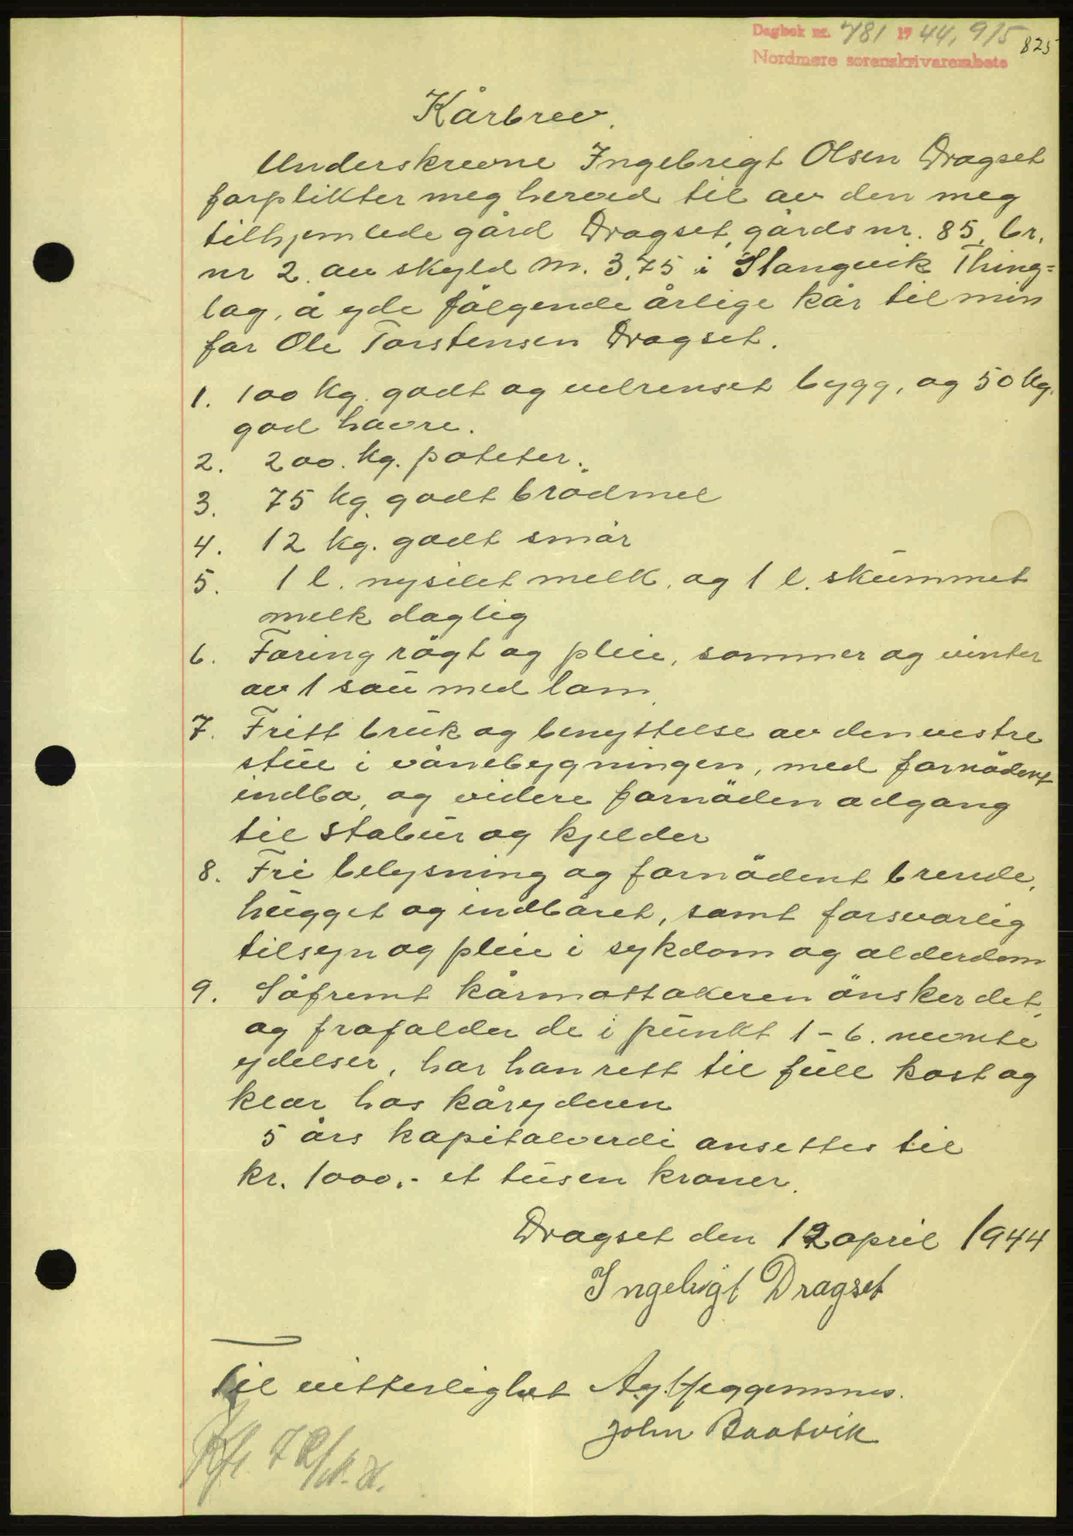 Dagbok nr. 781 1944, 9/5
825
Nordmøre sorenskriverembete
Kårbrev.
Underskrevne Ingebrigt Olsen Dragset
forplikter meg herved til av den meg
tilhjemlede gård Dragset, gårds nr. 85, br.
nr 2. av skyld m. 3,75 i Stangvik Thing=
lag, å yde fölgende årlige kår til min
far Ole Torstensen Dragset.
1. 100 kg. godt og velrenset bygg, og 50 kg.
god havre.
2. 200. kg. poteter.
3. 75 kg. godt brödmel
4. 12 kg. godt smör
5. 1 l. nysilet melk, og 1 l. skummet
melk daglig
6. Foring rögt og pleie, sommer og vinter
av 1 sau med lam.
7. Fritt bruk og benyttelse av den vestre
stue i vånebygningen, med fornödent
indbo, og videre fornöden adgang
til stabur og kjelder
8. Fri belysning og fornödent brende,
hugget og indbåret, samt forsvarlig
tilsyn og pleie i sykdom og alderdom
9. Såfremt kårmottakeren önsker det,
og frafalder de i punkt 1-6. nevnte
ydelser, har han rett til full kost og
klær hos kåryderen
5 års kapitalverdi ansettes til
kr. 1000.- et tusen kroner.
Dragset den 12 april 1944
Ingebrigt Dragset
Til vitterlighet Ag. Heggemnes.
John Baatvik